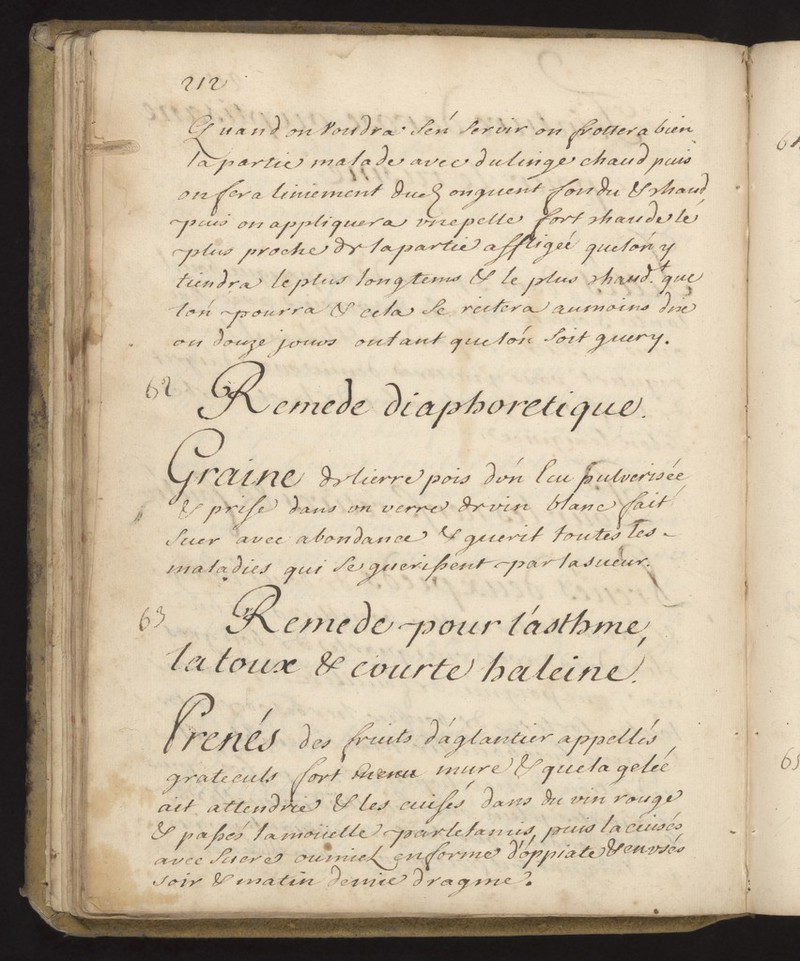 212
Quand on voudra s'en servir on frottera bien
la partie malade avec du linge chaud puis
on fera liniement dud. onguent fondu & chaud
puis on appliquera vne pelle fort chaude le
plus proche de la partie affligée que lon y
tiendra le plus longtems & le plus chaud.t que
lon pourra & cela se reitera aumoins dix
ou douze jours
62
Remede diaphoretique.
Graine de lierre pois d'vn Ecu pulverisée
& prise dans vn verre de vin blanc fait
suer avec abondance & guerit toutes les
maladies qui se guerissent par la sueur.
63
Remede pour l'asthme,
la toux & courte haleine.
Prenés des fruits d'aglantier appellés
grateculs fort mure & que la gelée
ait attendrie & les cuisés dans du vin rouge
& passés la moüelle par le tamis, puis la cuisés
avec sucre ou miel en forme d'oppiate & en vsés
soir & matin demie dragme.
65